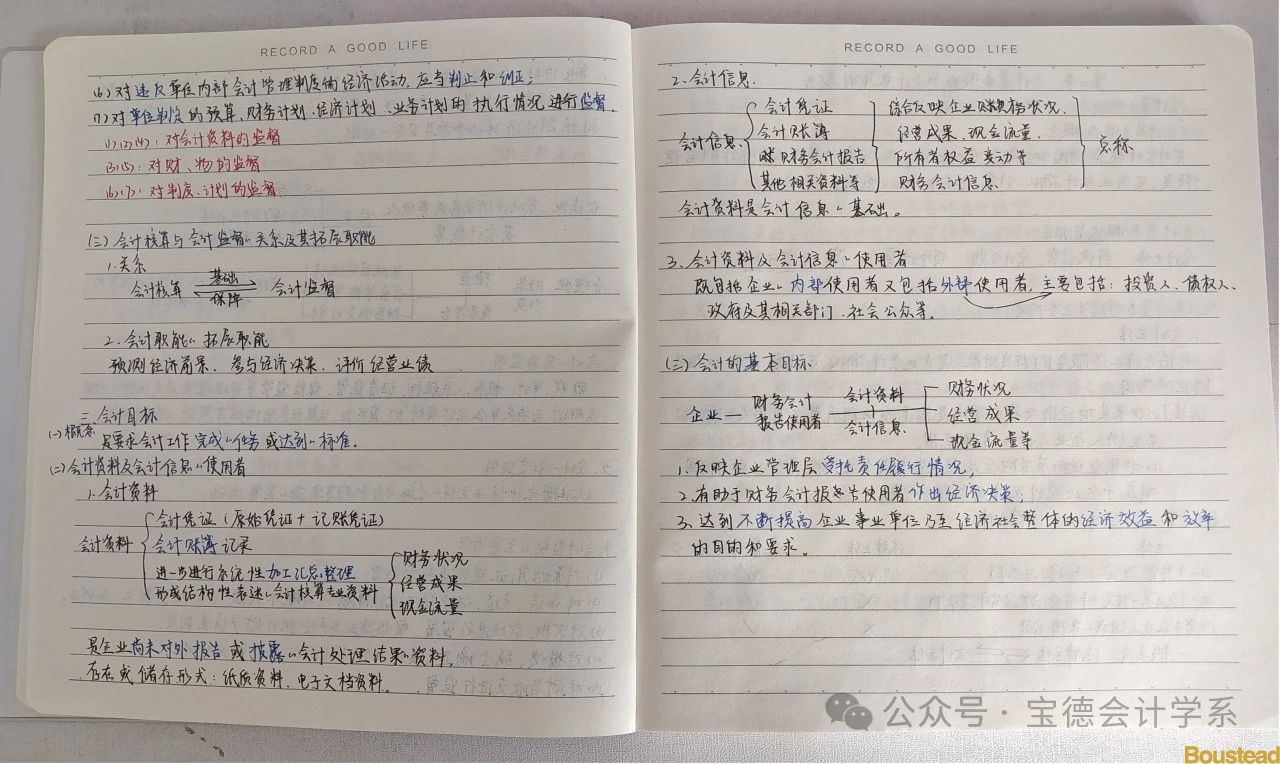 RECORD A GOOD LIFE
(6)对违反单位内部会计管理制度的经济活动,应当制止和纠正;
(7)对单位制定的预算、财务计划、经济计划、业务计划的执行情况进行监督.
(1)(2)(4):对会计资料的监督
(3)(5):对财、物的监督
(6)(7):对制度、计划的监督
(三)会计核算与会计监督〃关系及其拓展职能
1.关系
会计核算 基础 保障 会计监督
2.会计职能〃拓展职能
预测经济前景、参与经济决策、评价经营业绩
三.会计目标
(一)概念
是要求会计工作完成〃任务或达到〃标准.
(二)会计资料及会计信息〃使用者
1.会计资料
会计资料
会计凭证(原始凭证+记账凭证)
会计账簿记录
进一步进行系统性加工汇总整理
形成结构性表述〃会计核算专业资料
财务状况
经营成果
现金流量
是企业尚未对外报告或披露〃会计处理结果〃资料.
存在或储存形式:纸质资料、电子文档资料.
RECORD A GOOD LIFE
2.会计信息.
会计信息
会计凭证
会计账簿
财务会计报告
其他相关资料等
综合反映企业财务状况.
经营成果、现金流量.
所有者权益变动等
财务会计信息.
总称
会计资料是会计信息〃基础。
3.会计资料及会计信息〃使用者
既包括企业〃内部使用者又包括外部使用者,主要包括:投资人、债权人、
政府及其相关部门、社会公众等。
(三)会计的基本目标
企业 — 财务会计报告使用者
会计资料
会计信息
财务状况
经营成果
现金流量等
1.反映企业管理层受托责任履行情况;
2.有助于财务会计报告使用者作出经济决策;
3.达到不断提高企业事业单位乃至经济社会整体的经济效益和效率
的目的和要求。
公众号·宝德会计学系
Boustead